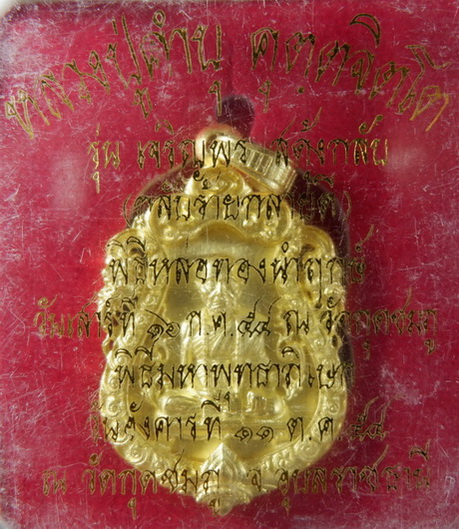 หลวงปู่คำบุ คุตฺตจิตฺโต
รุ่น เจริญพร สตังกลับ
(กลับร้ายกลายดี)
พิธีหล่อทองนำฤกษ์
วันเสาร์ที่ ๑๖ ก.ค.๕๔ ณ วัดกุดชมภู
พิธีมหาพุทธาภิเษก
วันอังคารที่ ๑๑ ต.ค.๕๔
ณ วัดกุดชมภู จ.อุบลราชธานี